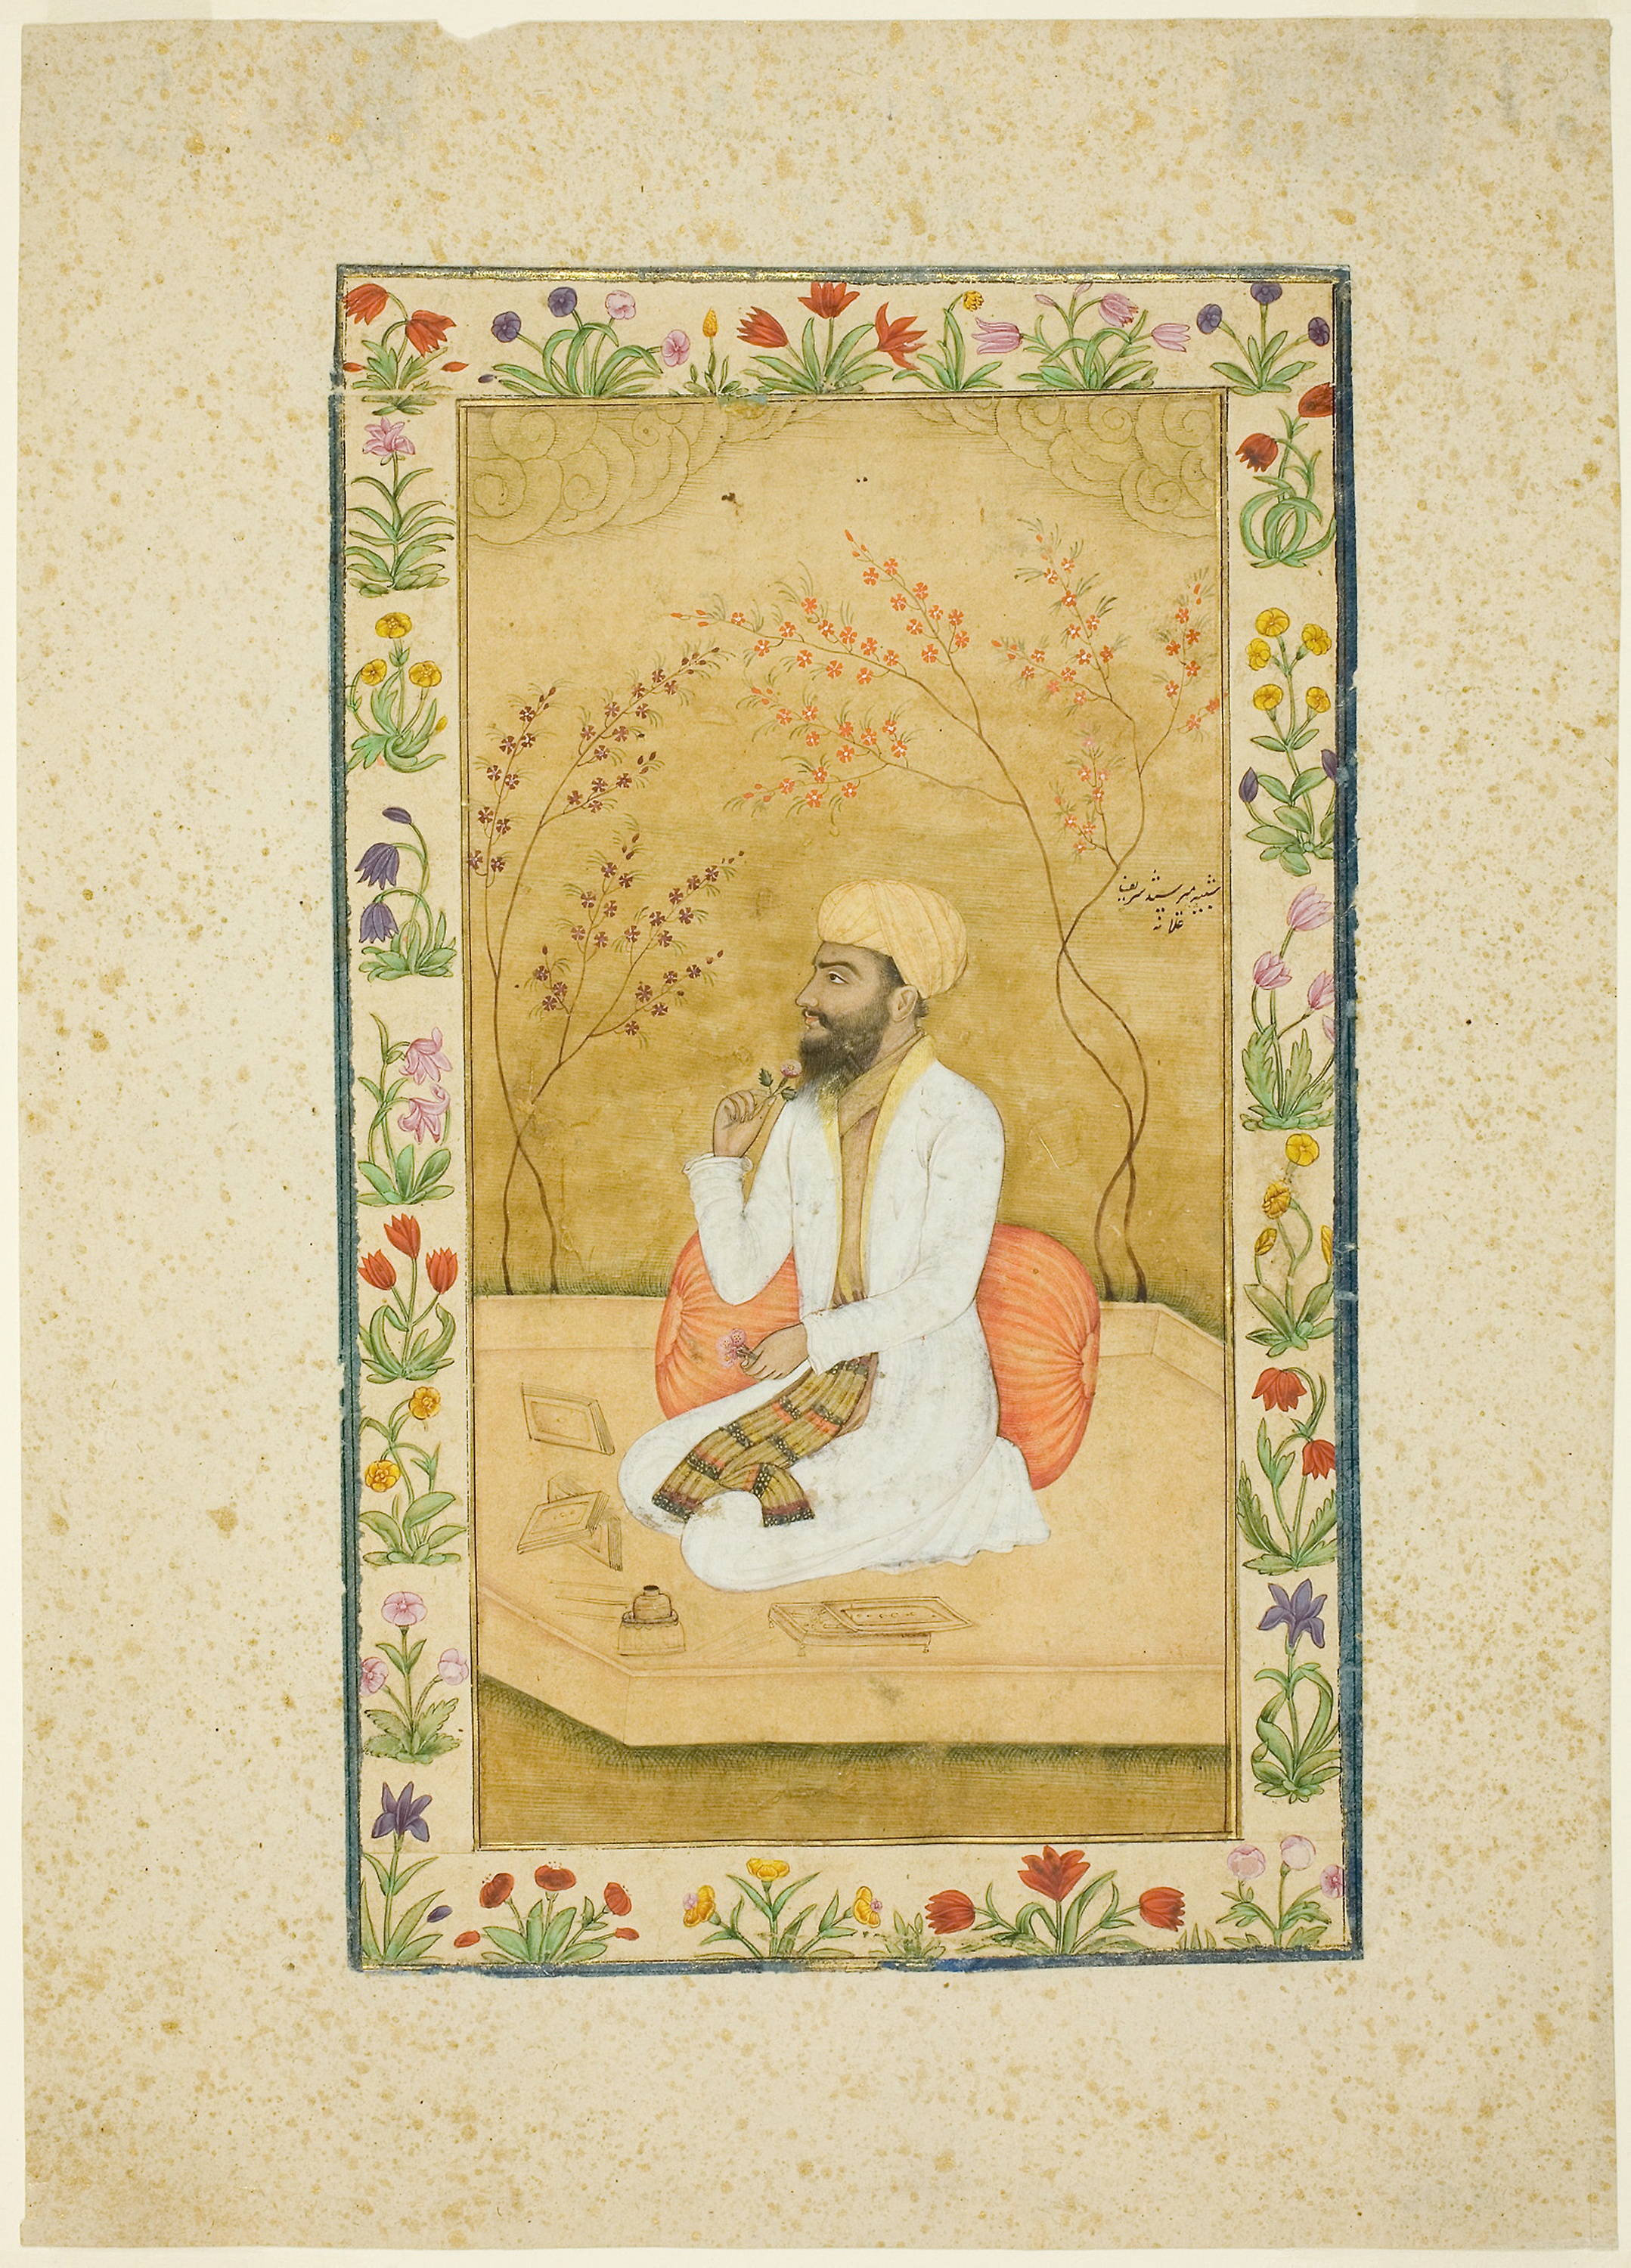 شبیه میر سید شریف
علامه